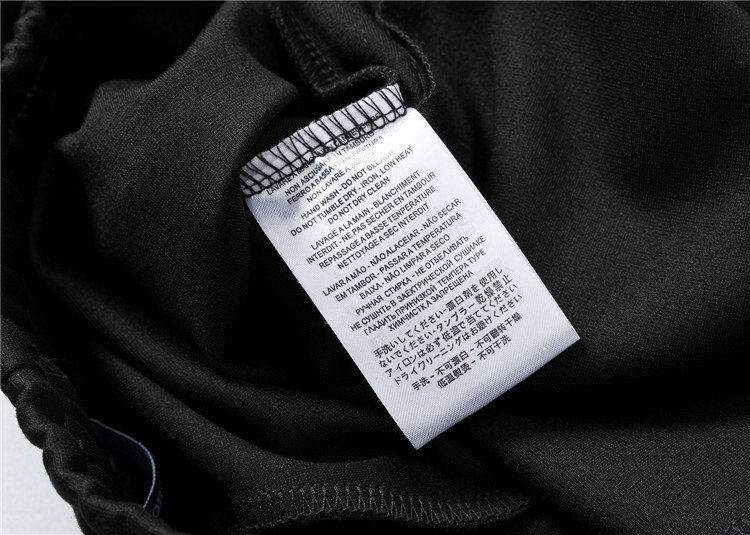 LAVARE A MANO
NON ASCIUGARE IN TAMBURO
FERRO A BASSA TEMPERATURA
NON LAVARE A SECCO
HAND WASH - DO NOT BLEACH
DO NOT TUMBLE DRY - IRON, LOW HEAT
DO NOT DRY CLEAN
LAVAGE A LA MAIN - BLANCHIMENT
INTERDIT - NE PAS SECHER EN TAMBOUR
REPASSAGE A BASSE TENPERATURE
NETTOYAGE A SEC INTERDIT
LAVAR A MÃO - NÃO ALACEIAR - NÃO SECAR
EM TAMBOR - PASSAR A TEMPERATURA
BAIXA - NÃO LIMPAR A SECO
РУЧНАЯ СТИРКА - НЕ ОТБЕАИВАТЬ
НЕ СУШИТЬ В ЗАЕКТРИЧЕСКОЙ СУШИЛКЕ
ГЛАДИТЬ ПРИ НИЗКОЙ ТЕМПЕРА ТУРЕ
ХИМЧИСТКА ЗАПРЕЩЕНА
手洗いしてください-漂白剤を使用し
ないでください-タンブラー乾燥禁止
アイロンは必ず低温で当ててください
ドライクリーニングはお避けください
手洗 - 不可漂白 - 不可翻转干燥
低温熨烫 - 不可干洗